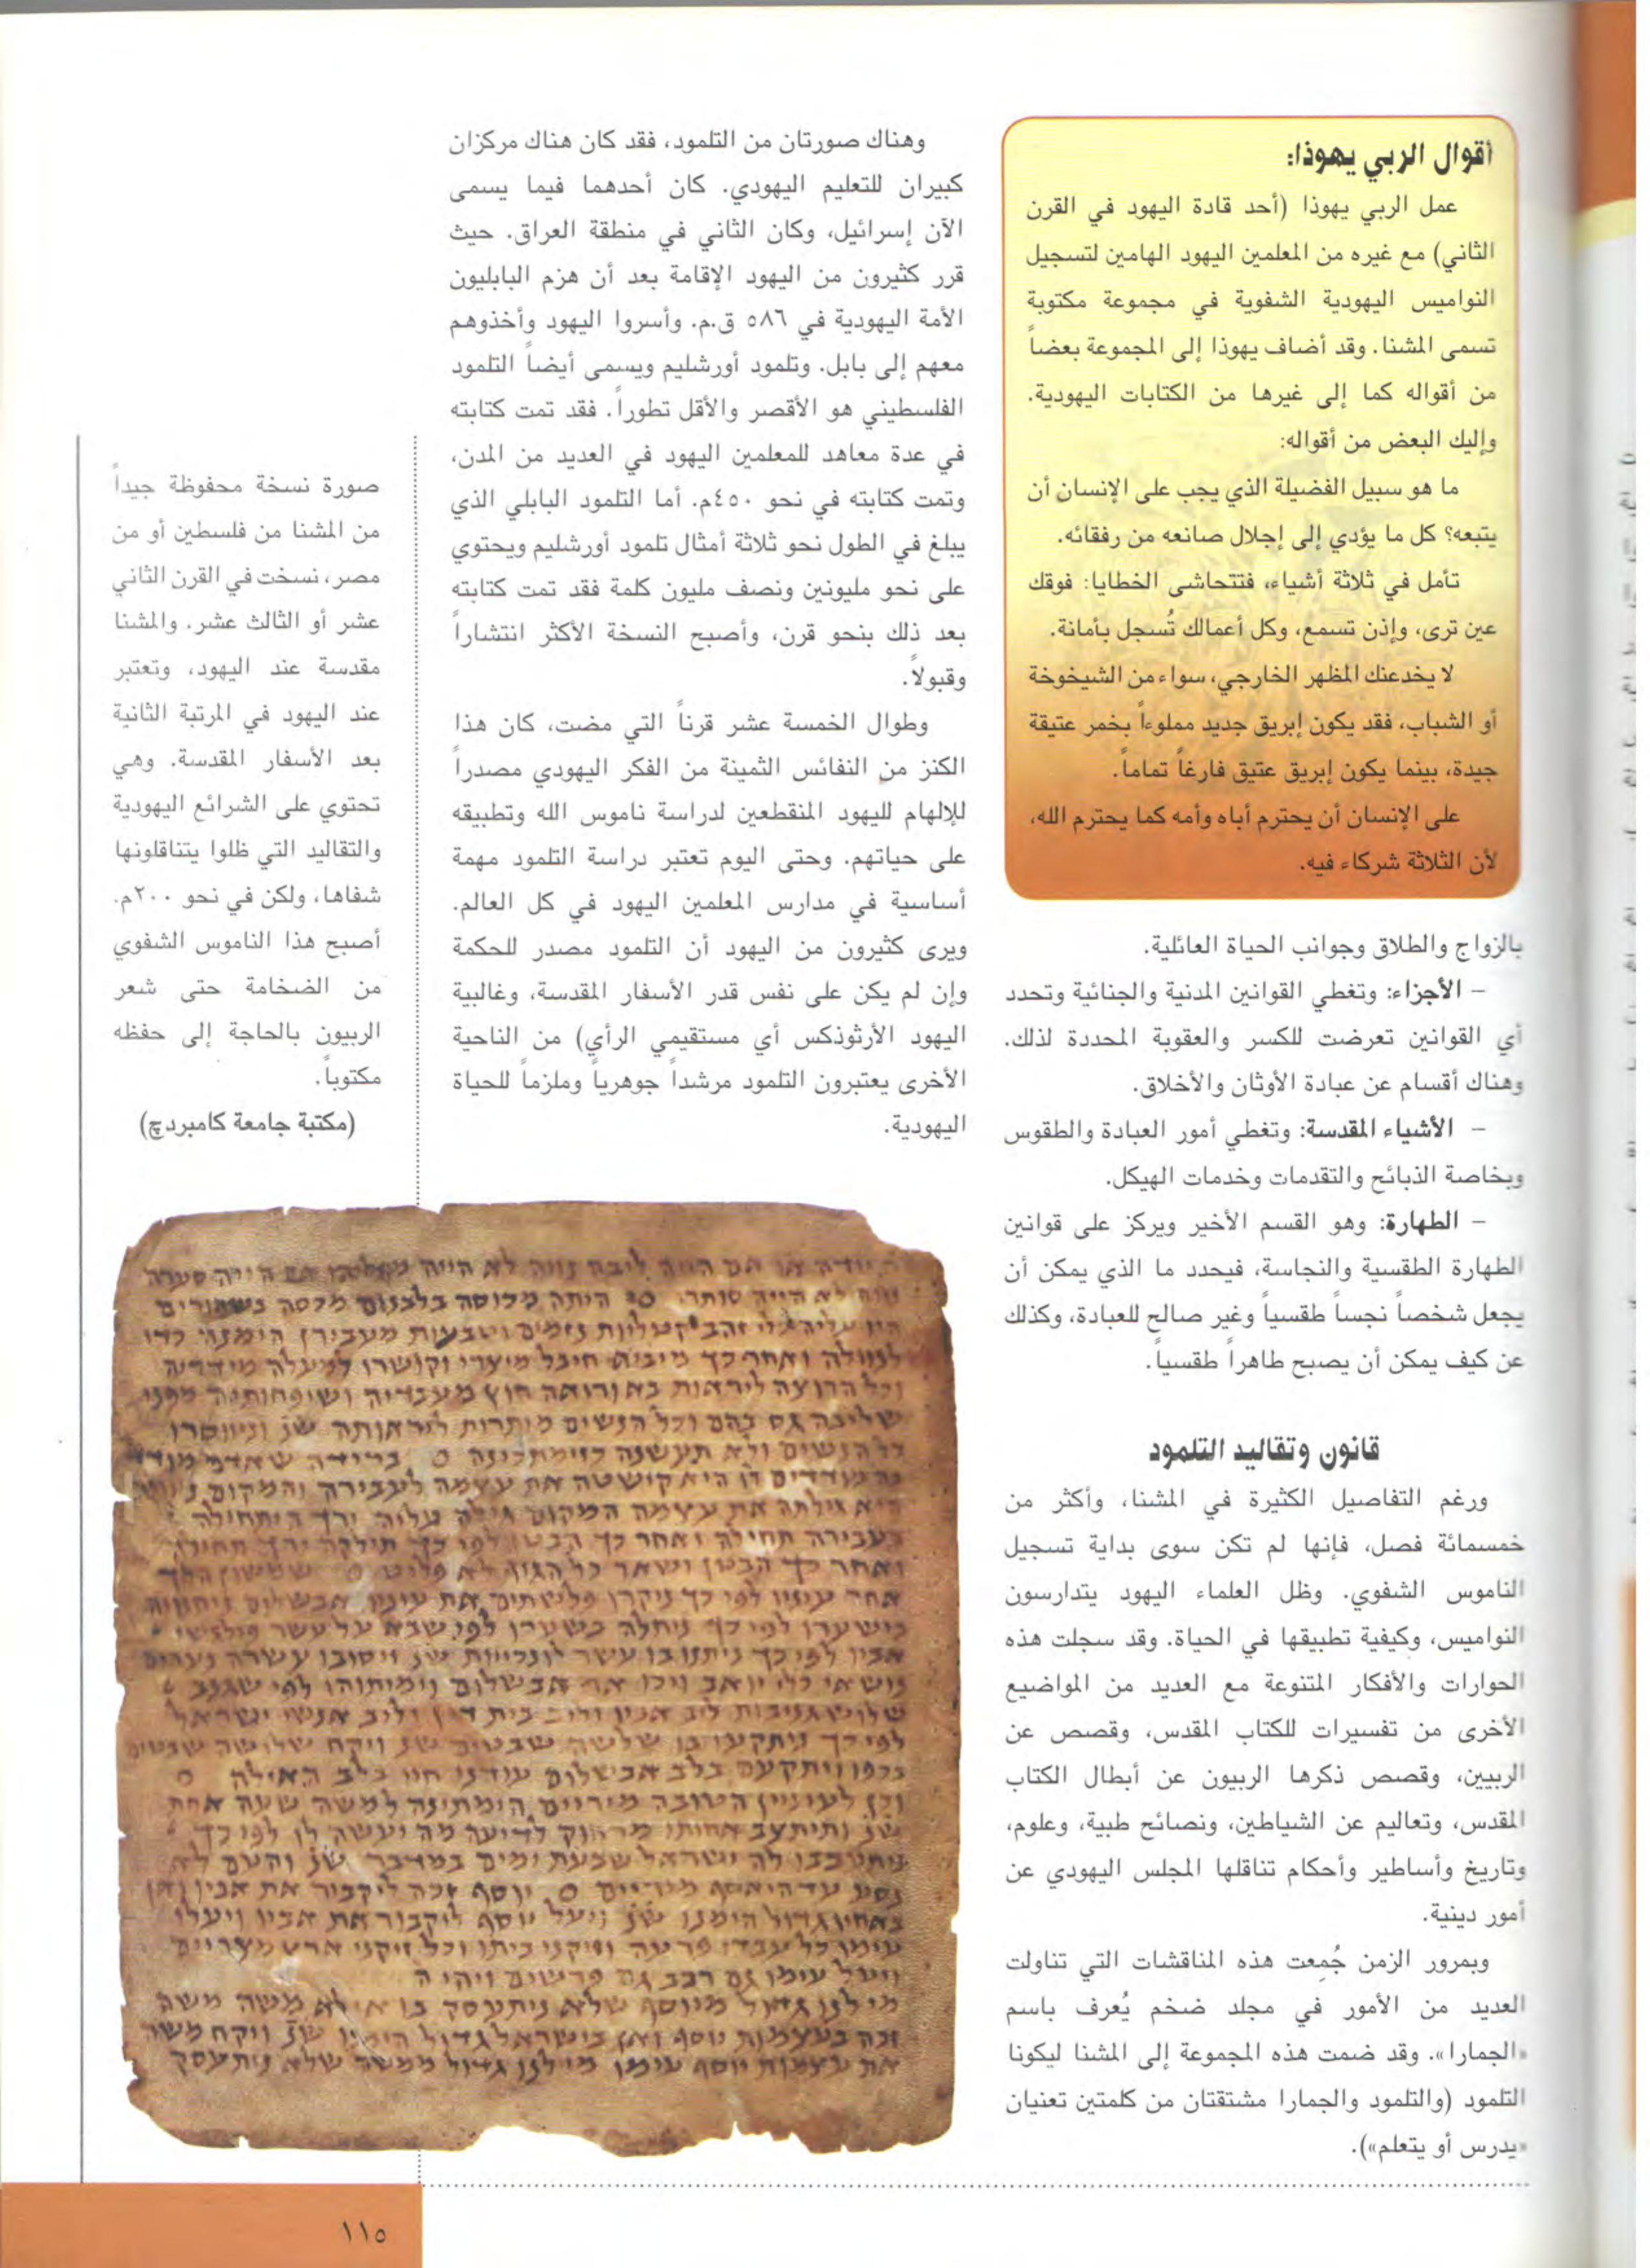 أقوال الربي يهوذا:
عمل الربي يهوذا (أحد قادة اليهود في القرن
الثاني) مع غيره من المعلمين اليهود الهامين لتسجيل
النواميس اليهودية الشفوية في مجموعة مكتوبة
تسمى المشنا. وقد أضاف يهوذا إلى المجموعة بعضاً
من أقواله كما إلى غيرها من الكتابات اليهودية.
وإليك البعض من أقواله:
ما هو سبيل الفضيلة الذي يجب على الإنسان أن
يتبعه؟ كل ما يؤدي إلى إجلال صانعه من رفقائه.
تأمل في ثلاثة أشياء، فتتحاشى الخطايا: فوقك
عين ترى، وإذن تسمع، وكل أعمالك تُسجل بأمانة.
لا يخدعنك المظهر الخارجي، سواء من الشيخوخة
أو الشباب، فقد يكون إبريق جديد مملوءاً بخمر عتيقة
جيدة، بينما يكون إبريق عتيق فارغاً تماماً.
على الإنسان أن يحترم أباه وأمه كما يحترم الله،
لأن الثلاثة شركاء فيه.
بالزواج والطلاق وجوانب الحياة العائلية.
– الأجزاء: وتغطي القوانين المدنية والجنائية وتحدد
أي القوانين تعرضت للكسر والعقوبة المحددة لذلك.
وهناك أقسام عن عبادة الأوثان والأخلاق.
– الأشياء المقدسة: وتغطي أمور العبادة والطقوس
وبخاصة الذبائح والتقدمات وخدمات الهيكل.
– الطهارة: وهو القسم الأخير ويركز على قوانين
الطهارة الطقسية والنجاسة، فيحدد ما الذي يمكن أن
يجعل شخصاً نجساً طقسياً وغير صالح للعبادة، وكذلك
عن كيف يمكن أن يصبح طاهراً طقسياً.
قانون وتقاليد التلمود
ورغم التفاصيل الكثيرة في المشنا، وأكثر من
خمسمائة فصل، فإنها لم تكن سوى بداية تسجيل
الناموس الشفوي. وظل العلماء اليهود يتدارسون
النواميس، وكيفية تطبيقها في الحياة. وقد سجلت هذه
الحوارات والأفكار المتنوعة مع العديد من المواضيع
الأخرى من تفسيرات للكتاب المقدس، وقصص عن
الربيين، وقصص ذكرها الربيون عن أبطال الكتاب
المقدس، وتعاليم عن الشياطين، ونصائح طبية، وعلوم،
وتاريخ وأساطير وأحكام تناقلها المجلس اليهودي عن
أمور دينية.
وبمرور الزمن جُمِعت هذه المناقشات التي تناولت
العديد من الأمور في مجلد ضخم يُعرف باسم
«الجمارا». وقد ضمت هذه المجموعة إلى المشنا ليكونا
التلمود (والتلمود والجمارا مشتقتان من كلمتين تعنيان
«يدرس أو يتعلم»).
وهناك صورتان من التلمود، فقد كان هناك مركزان
كبيران للتعليم اليهودي. كان أحدهما فيما يسمى
الآن إسرائيل، وكان الثاني في منطقة العراق. حيث
قرر كثيرون من اليهود الإقامة بعد أن هزم البابليون
الأمة اليهودية في ٥٨٦ ق.م. وأسروا اليهود وأخذوهم
معهم إلى بابل. وتلمود أورشليم ويسمى أيضاً التلمود
الفلسطيني هو الأقصر والأقل تطوراً. فقد تمت كتابته
في عدة معاهد للمعلمين اليهود في العديد من المدن،
وتمت كتابته في نحو ٤٥٠م. أما التلمود البابلي الذي
يبلغ في الطول نحو ثلاثة أمثال تلمود أورشليم ويحتوي
على نحو مليونين ونصف مليون كلمة فقد تمت كتابته
بعد ذلك بنحو قرن، وأصبح النسخة الأكثر انتشاراً
وقبولاً.
وطوال الخمسة عشر قرناً التي مضت، كان هذا
الكنز من النفائس الثمينة من الفكر اليهودي مصدراً
للإلهام لليهود المنقطعين لدراسة ناموس الله وتطبيقه
على حياتهم. وحتى اليوم تعتبر دراسة التلمود مهمة
أساسية في مدارس المعلمين اليهود في كل العالم.
ويرى كثيرون من اليهود أن التلمود مصدر للحكمة
وإن لم يكن على نفس قدر الأسفار المقدسة، وغالبية
اليهود الأرثوذكس أي مستقيمي الرأي) من الناحية
الأخرى يعتبرون التلمود مرشداً جوهرياً وملزماً للحياة
اليهودية.
صورة نسخة محفوظة جيداً
من المشنا من فلسطين أو من
مصر، نسخت في القرن الثاني
عشر أو الثالث عشر. والمشنا
مقدسة عند اليهود، وتعتبر
عند اليهود في المرتبة الثانية
بعد الأسفار المقدسة. وهي
تحتوي على الشرائع اليهودية
والتقاليد التي ظلوا يتناقلونها
شفاها، ولكن في نحو ٢٠٠م.
أصبح هذا الناموس الشفوي
من الضخامة حتى شعر
الربيون بالحاجة إلى حفظه
مكتوباً.
(مكتبة جامعة كامبردچ)
היתה מכוסה בלבנים מכסה בשחורים
וכל הרוצה ליראות בא ורואה חוץ מעבדיה ושיפחותיה מפני
שליבה גס בהם וכל הנשים מותרות לראותה שנ׳ וניווסרו
כל הנשים ולא תעשנה כזימתכינה
היא קושטה את עצמה לעבירה והמקום
ואחר כך הבטן ושאר כל הגוף לא פליט
נושאי כלי יואב ויכו את אבשלום וימיתוהו לפי שגנב
בכפו ויתקעם בלב אבשלום עודנו חי בלב האילה
שנ׳ ותיתצב אחותו מרחוק לדיעה מה יעשה לו לפי כך
ויעל עימו גם רכב גם פרשים ויהי ה
מי לנו גדול מיוסף שלא ניתעסק בו אילא משה משה
זכה בעצמות יוסף ואין בישראל גדול הימינו שנ׳ ויקח משה
את עצמות יוסף עימו מי לנו גדול ממשה שלא ניתעסק
١١٥